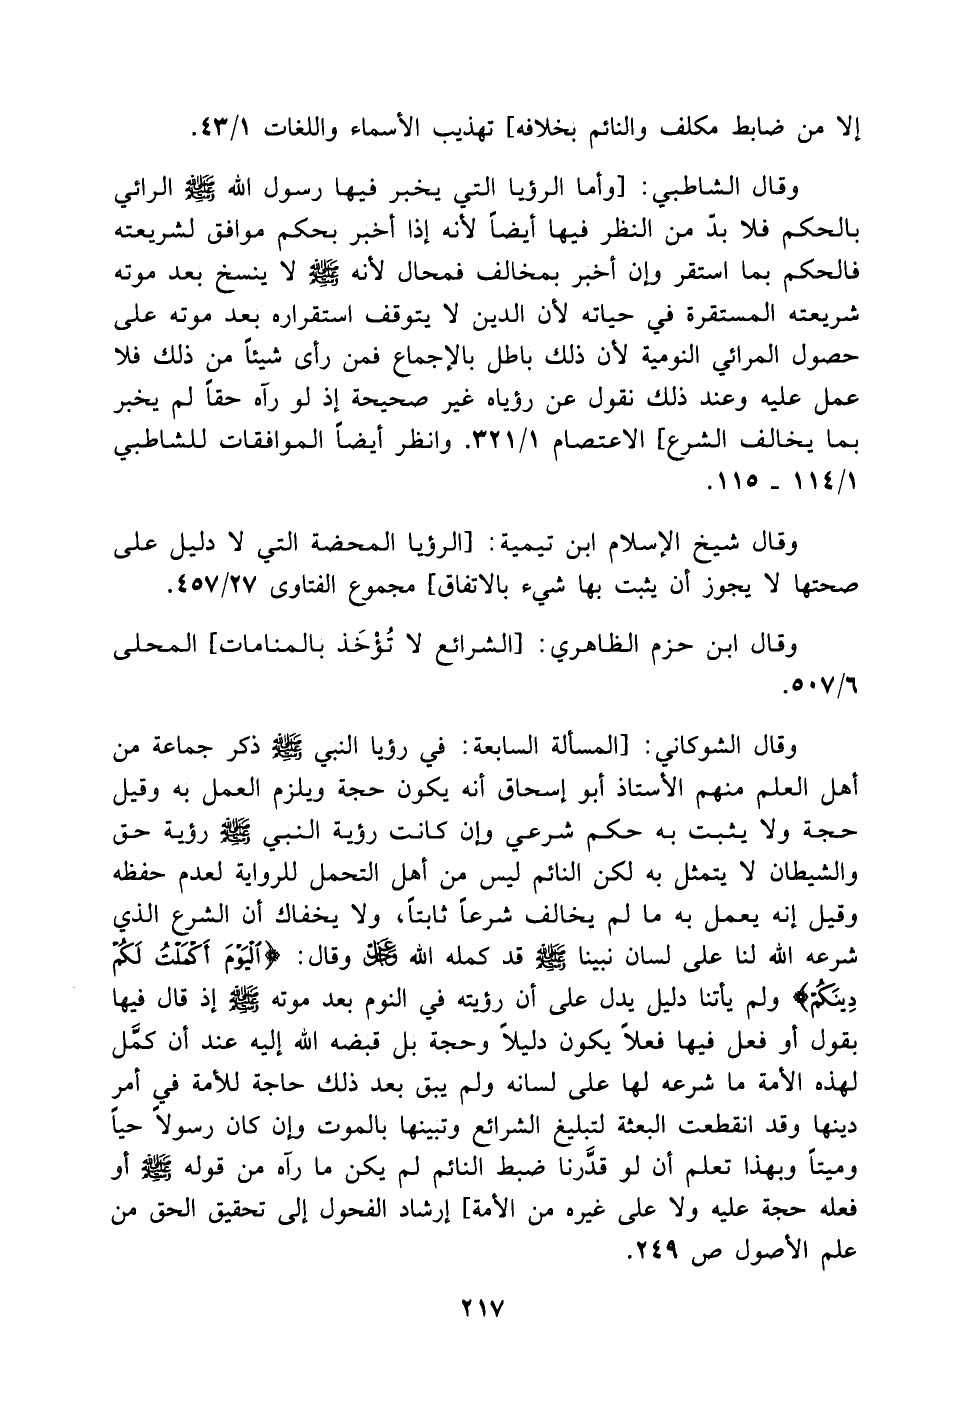 إلا من ضابط مكلف والنائم بخلافه] تهذيب الأسماء واللغات ٤٣/١.
وقال الشاطبي: [وأما الرؤيا التي يخبر فيها رسول الله ﷺ الرائي
بالحكم فلا بدّ من النظر فيها أيضاً لأنه إذا أخبر بحكم موافق لشريعته
فالحكم بما استقر وإن أخبر بمخالف فمحال لأنه ﷺ لا ينسخ بعد موته
شريعته المستقرة في حياته لأن الدين لا يتوقف استقراره بعد موته على
حصول المرائي النومية لأن ذلك باطل بالإجماع فمن رأى شيئاً من ذلك فلا
عمل عليه وعند ذلك نقول عن رؤياه غير صحيحة إذ لو رآه حقاً لم يخبر
بما يخالف الشرع] الاعتصام ٣٢١/١. وانظر أيضاً الموافقات للشاطبي
١١٤/١ - ١١٥.
وقال شيخ الإسلام ابن تيمية: [الرؤيا المحضة التي لا دليل على
صحتها لا يجوز أن يثبت بها شيء بالاتفاق] مجموع الفتاوى ٤٥٧/٢٧.
وقال ابن حزم الظاهري: [الشرائع لا تُؤْخَذ بالمنامات] المحلى
٥٠٧/٦.
وقال الشوكاني: [المسألة السابعة: في رؤيا النبي ﷺ ذكر جماعة من
أهل العلم منهم الأستاذ أبو إسحاق أنه يكون حجة ويلزم العمل به وقيل
حجة ولا يثبت به حكم شرعي وإن كانت رؤية النبي ﷺ رؤية حق
والشيطان لا يتمثل به لكن النائم ليس من أهل التحمل للرواية لعدم حفظه
وقيل إنه يعمل به ما لم يخالف شرعاً ثابتاً، ولا يخفاك أن الشرع الذي
شرعه الله لنا على لسان نبينا ﷺ قد كمله الله عَزَّ وَجَلَّ وقال: ﴿ٱلْيَوْمَ أَكْمَلْتُ لَكُمْ
دِينَكُمْ﴾ ولم يأتنا دليل يدل على أن رؤيته في النوم بعد موته ﷺ إذ قال فيها
بقول أو فعل فيها فعلاً يكون دليلاً وحجة بل قبضه الله إليه عند أن كمَّل
لهذه الأمة ما شرعه لها على لسانه ولم يبق بعد ذلك حاجة للأمة في أمر
دينها وقد انقطعت البعثة لتبليغ الشرائع وتبينها بالموت وإن كان رسولاً حياً
وميتاً وبهذا تعلم أن لو قدَّرنا ضبط النائم لم يكن ما رآه من قوله ﷺ أو
فعله حجة عليه ولا على غيره من الأمة] إرشاد الفحول إلى تحقيق الحق من
علم الأصول ص ٢٤٩.
٢١٧